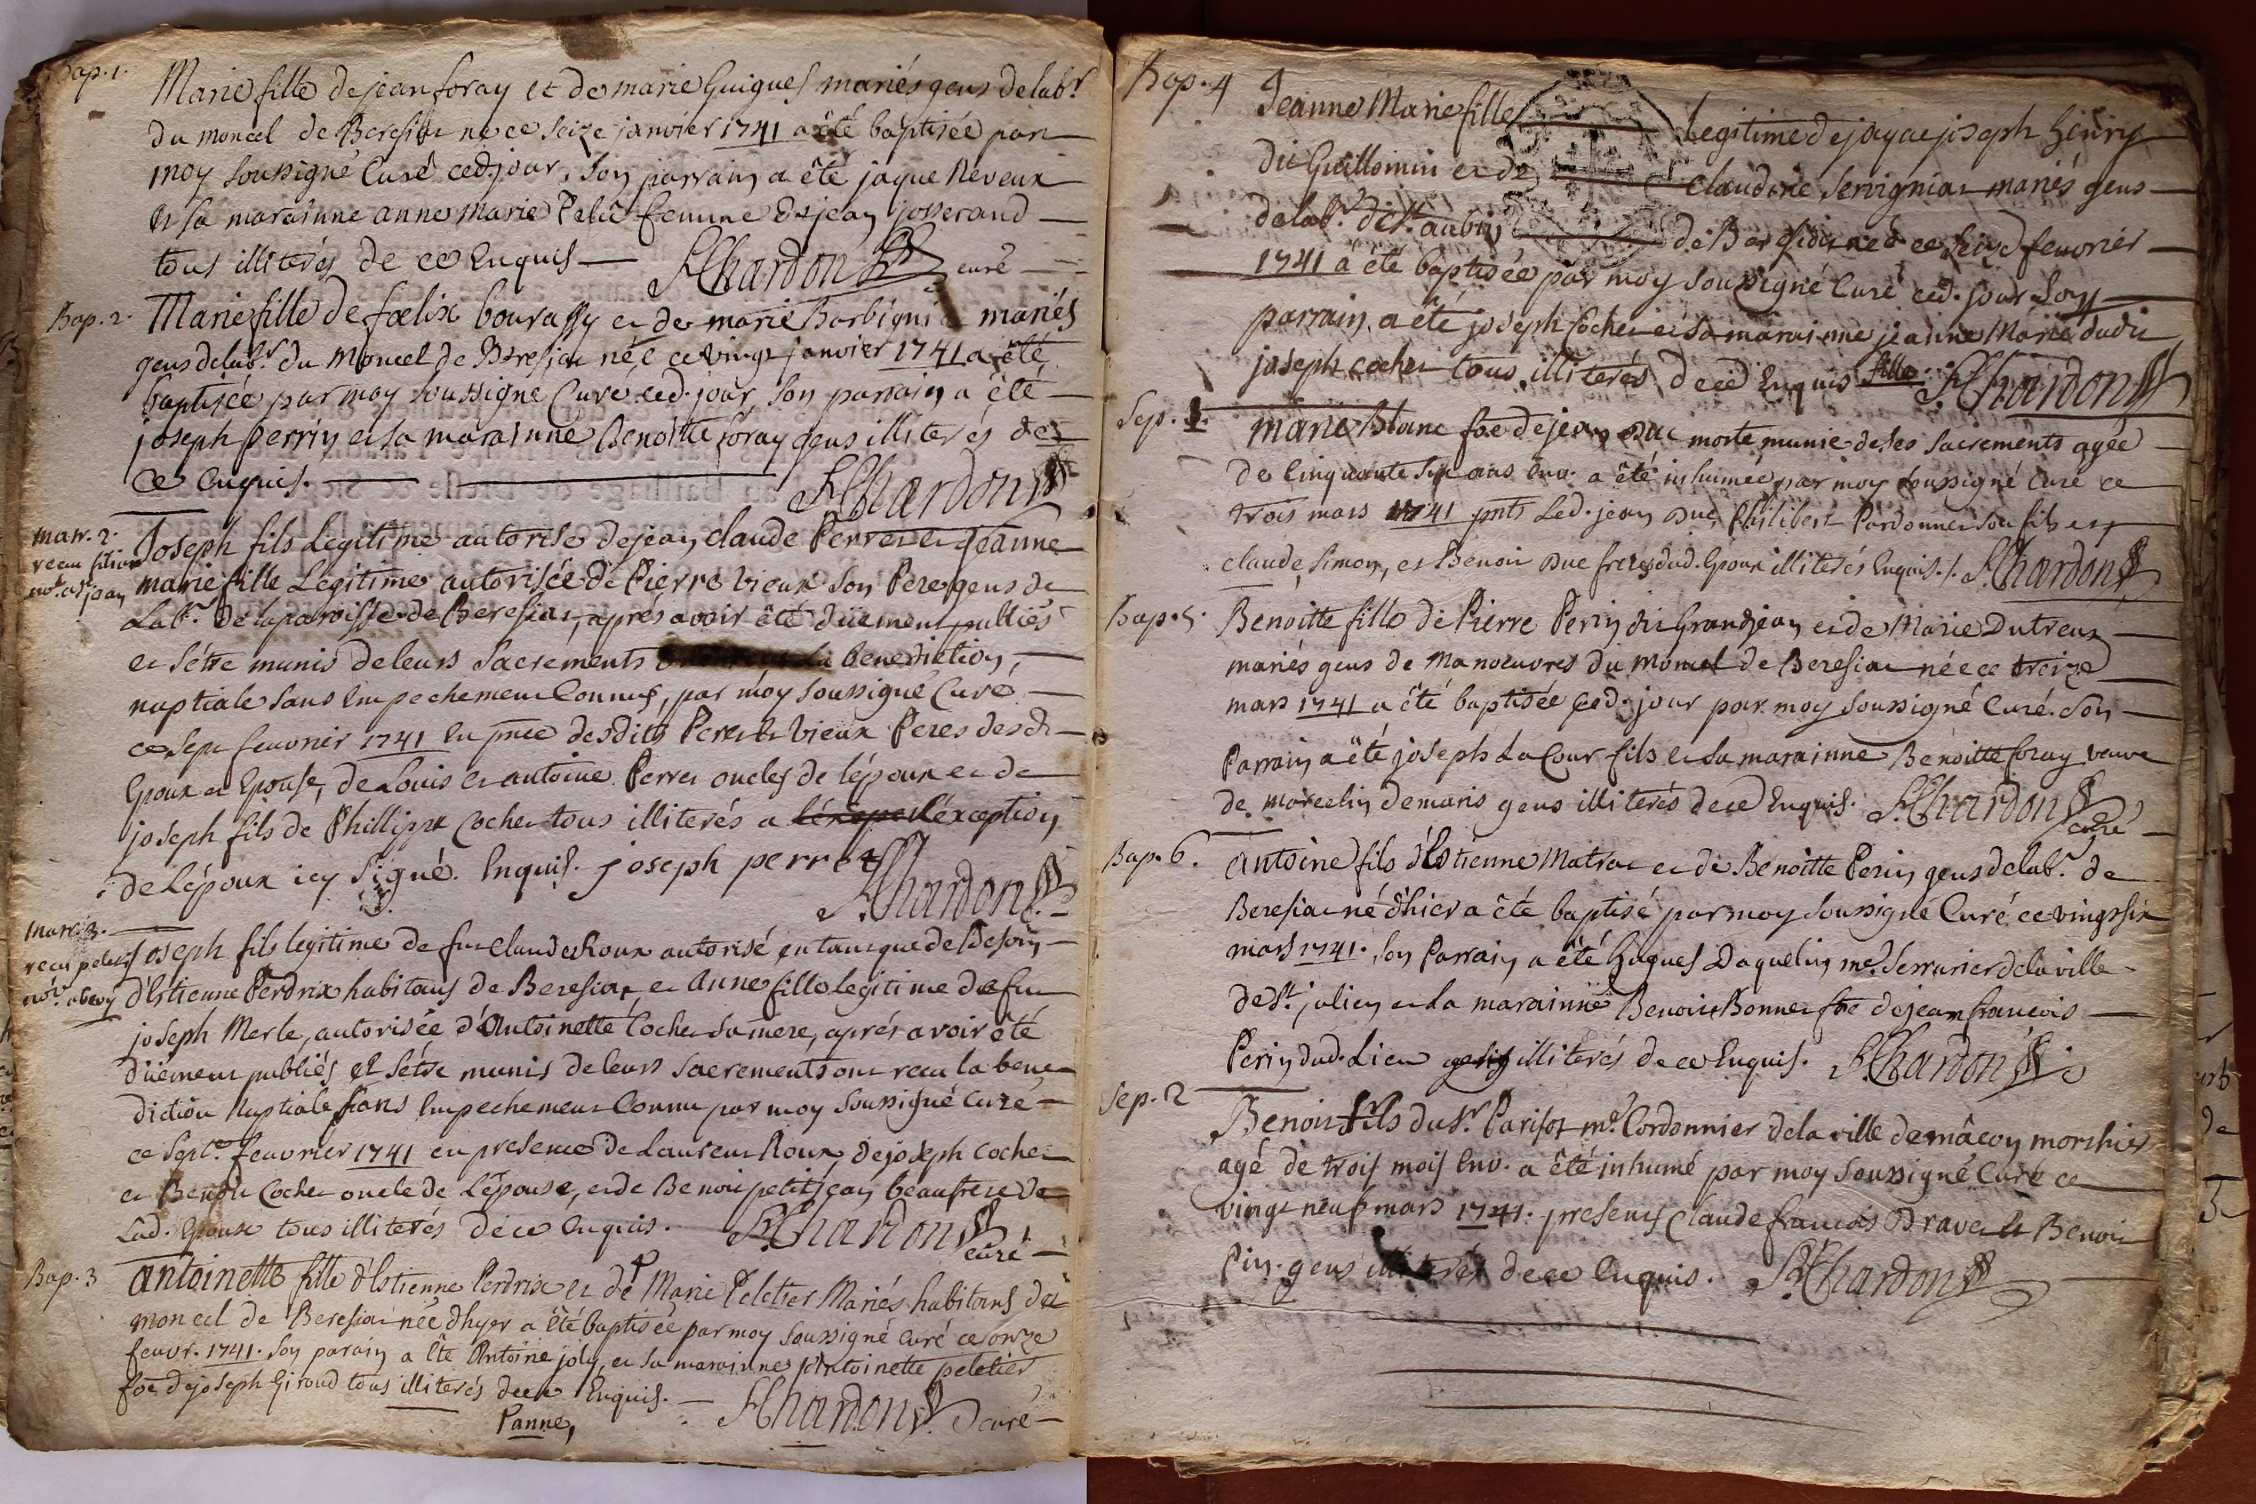 Bap. 1.
Marie fille de jean foray et de marie Guigues mariés gens de lab.r
du moncel de Beresiat née ce seize janvier 1741 a été baptisée par
moy soussigné Curé ced. jour, son parrain a été jaque Neveux
et sa marainne anne marie Pelu femme de jean josserand
tous illiterés de ce Enquis
Chardon curé
Bap. 2.
Marie fille de foelix bourassy et de marie Barbignia mariés
gens de lab.r du Moncel de Beresiat née ce vingt janvier 1741 a été
baptisée par moy soussigné Curé ced. jour son parrain a été
joseph perrin et sa marainne Benoitte foray gens illiterés de
ce Enquis.
Chardon
mar. 2.
Joseph fils Legitime autorisé de jean claude Perret et jeanne
marie fille Legitime autorisée de Pierre Vieux son Pere gens de
Lab.r de la paroisse de Beresiat, aprés avoir été düement publiés
et s'étre munis de leurs Sacrements benediction,
nuptiale sans Empechement Connus, par moy soussigné Curé
ce sept feuvrier 1741 En pnce desdits Perret et Vieux Peres desd.
Epoux et Epouse, de Louis et antoine Perret oncles de l'époux et de
joseph fils de Phillippe Cochet tous illiterés a l'éxception
de L'époux icy signé. Enquis. joseph perret
Chardon
mar. 3.
joseph fils legitime de fut claude Roux autorisé en tant que de Besoin
d'Estienne Perdrix habitans de Beresiat et Anne fille legitime de fut
joseph Merle, autorisée d'Antoinette Cochet sa mere, aprés avoir été
düement publiés et s'étre munis de leurs sacrements ont receu la bene
diction Nuptiale sans Empechement Connu par moy soussigné Curé
ce sept.e feuvrier 1741 en presence de Laurent Roux, de joseph cochet
et Benoit Cochet oncle de L'épouse, et de Benoit petitjean beaufrere de
Lad. Epouse tous illiterés de ce Enquis.
Chardon curé
Bap. 3
Antoinette fille d'Estienne Perdrix et de Marie Peletier Mariés habitans du
moncel de Beresiat née d'hyer a été baptisée par moy soussigné Curé ce onze
feuvr. 1741. son parain a été Antoine joly, et sa marainne Antoinette peletier
foe de joseph Giroud tous illiterés de ce Enquis.
Chardon curé
l'anne,
Bap. 4
Jeanne Marie fille Legitime de jaque joseph henry
dit Guillomin et de Claudine Servigniat mariés gens
de lab.r de St. aubin de Beresiat née ce seize feuvrier
1741 a été baptisée par moy soussigné Curé ced. jour Son
parrain a été joseph Cochet et sa marainne jeanne Marie dudit
joseph cochet tous illiterés de ce Enquis fille.
Chardon
Sep. 1.
marie Blanc foe de jean Duc morte munie de ses sacrements agée
de Cinquante six ans Env. a été inhumée par moy soussigné Curé ce
trois mars 1741 pnts Led. jean Duc, Philibert Pardonnet son fils et
claude, simon, et Benoit Duc freres dud. Epoux illiterés Enquis.
Chardon
Bap. 5.
Benoitte fille de Pierre Perin dit Grandjean et de Marie Dutreux
mariés gens de Manoeuvres du Moncel de Beresiat née ce treize
mars 1741 a été baptisée ced. jour par moy soussigné Curé. Son
Parrain a été joseph La Cour fils et sa marainne Benoitte foray veuve
de marcelin demaris gens illiterés de ce Enquis.
Chardon curé
Bap. 6.
Antoine fils d'Estienne Matrat et de Benoitte Perin gens de lab.r de
Beresiat né d'hier a été baptisé par moy soussigné Curé ce vingt six
mars 1741. son Parrain a été hugues Daquelin me. Serrurier de la ville
de St. julien et La marainne Benoite Bonnet foe de jean francois
Perin dud. Lieu illiterés de ce Enquis.
Chardon
Sep. 2
Benoit fils du Sr. Parisot me. Cordonnier de la ville de mâcon mort hier
agé de trois mois Env. a été inhumé par moy soussigné Curé ce
vingt neuf mars 1741. presents Claude francois Dravet et Benoit
Pin. gens illiterés de ce Enquis.
Chardon